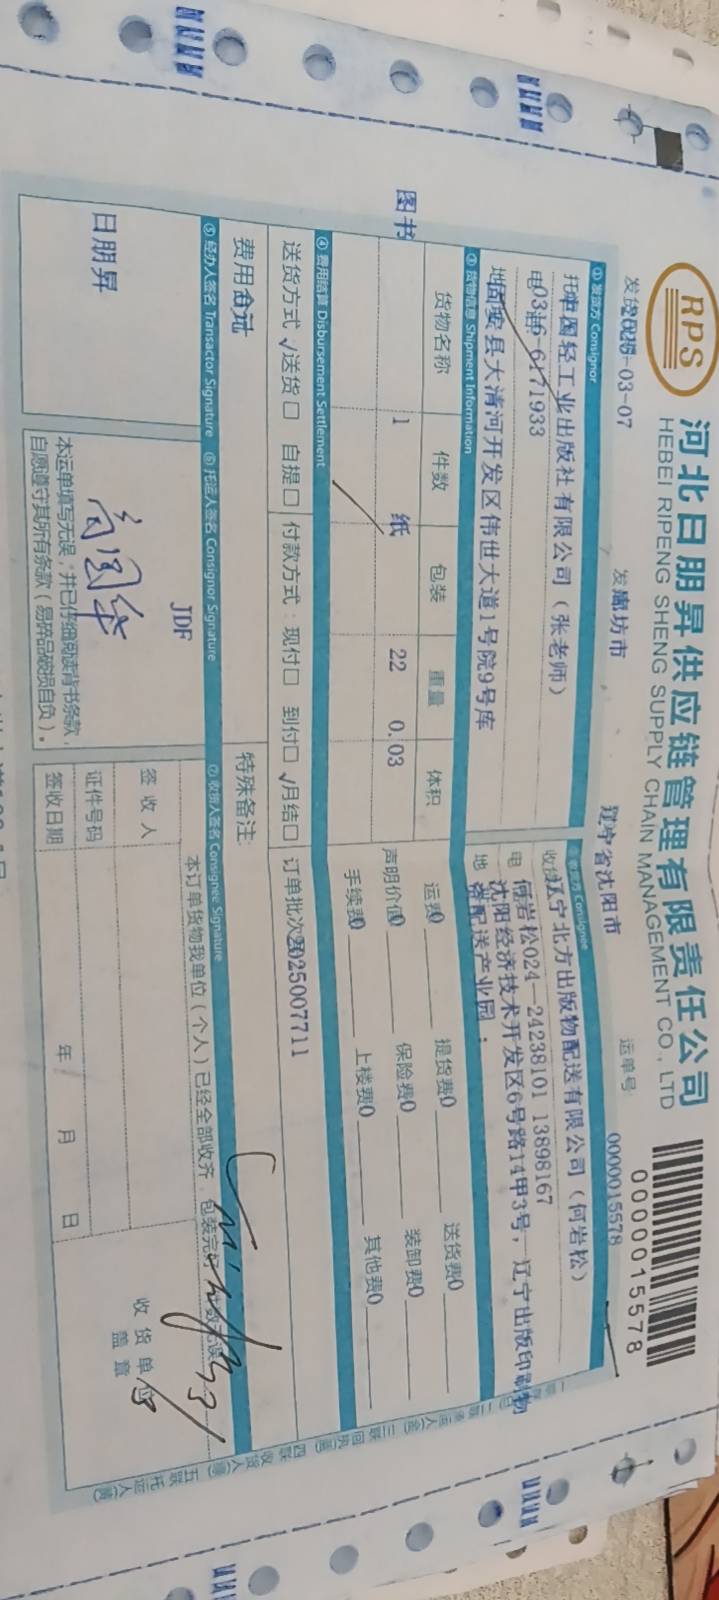 RPS
河北日朋昇供应链管理有限责任公司
HEBEI RIPENG SHENG SUPPLY CHAIN MANAGEMENT CO., LTD
0000015578
-03-07
廊坊市
辽宁省沈阳市
运单号:
0000015578
① 发货方 Consignor
中国轻工业出版社有限公司（张老师）
-6171933
固安县大清河开发区伟世大道1号院9号库
②收货方 Consignee
辽宁北方出版物配送有限公司（何岩松）
何岩松024—24238101 13898167
沈阳经济技术开发区6号路14甲3号，辽宁出版印刷物
配送产业园；
③ 货物信息 Shipment Information
货物名称 件数 包装 重量 体积
图书 1 纸 22 0.03
运费0 提货费0 送货费0
声明价值0 保险费0 装卸费0
手续费0 上楼费0 其他费0
④ 费用结算 Disbursement Settlement
送货方式 √送货□ 自提□ 付款方式：现付□ 到付□ √月结□
订单批次 2025007711
费用合计
特殊备注:
⑤ 经办人签名 Transactor Signature
日朋昇
⑥ 托运人签名 Consignor Signature
JDF
本运单填写无误，并已仔细阅读背书条款，
自愿遵守其所有条款（易碎品破损自负）。
⑦ 收货人签名 Consignee Signature
本订单货物我单位（个人）已经全部收齐，包装完好
签收人
证件号码
签收日期
年 月 日
收货单位
盖章